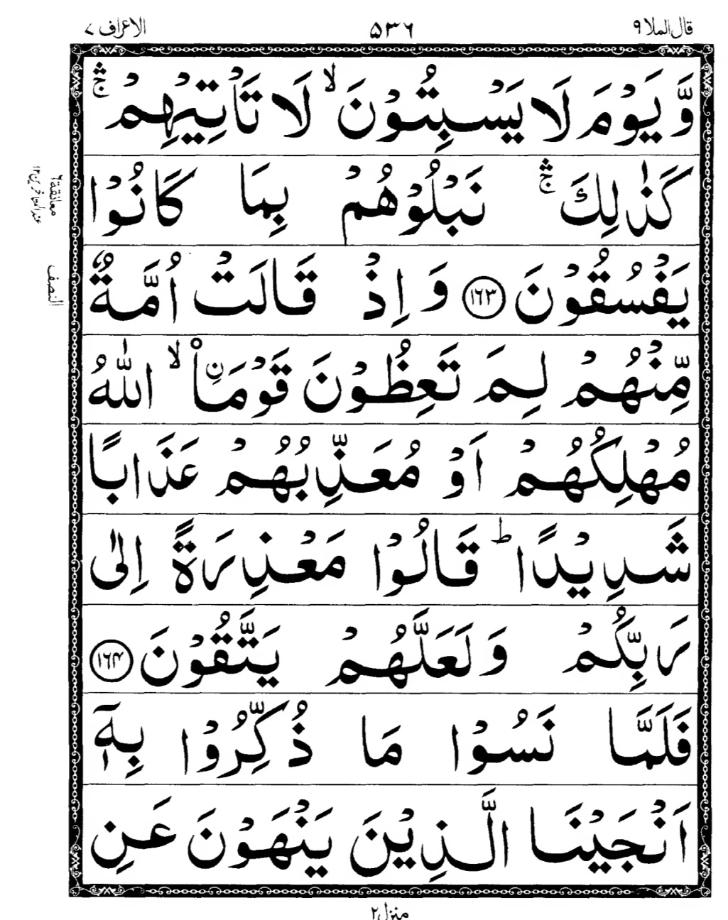 قال الملا ٩ ۵۳۶ الاعراف ٧
وَّ يَوْمَ لَا يَسْبِتُوْنَ ۙ لَا تَاْتِيْهِمْ ۛۚ
كَذٰلِكَ ۛۚ نَبْلُوْهُمْ بِمَا كَانُوْا
يَفْسُقُوْنَ ﴿۱۶۳﴾ وَ اِذْ قَالَتْ اُمَّةٌ
مِّنْهُمْ لِمَ تَعِظُوْنَ قَوْمَاْ ۙ ن ِ اللّٰهُ
مُهْلِكُهُمْ اَوْ مُعَذِّبُهُمْ عَذَابًا
شَدِيْدًا ؕ قَالُوْا مَعْذِرَةً اِلٰى
رَبِّكُمْ وَ لَعَلَّهُمْ يَتَّقُوْنَ ﴿۱۶۴﴾
فَلَمَّا نَسُوْا مَا ذُكِّرُوْا بِهٖۤ
اَنْجَيْنَا الَّذِيْنَ يَنْهَوْنَ عَنِ
معانقة ٦
عند المتاخرين ١٢
النصف
منزل ٢